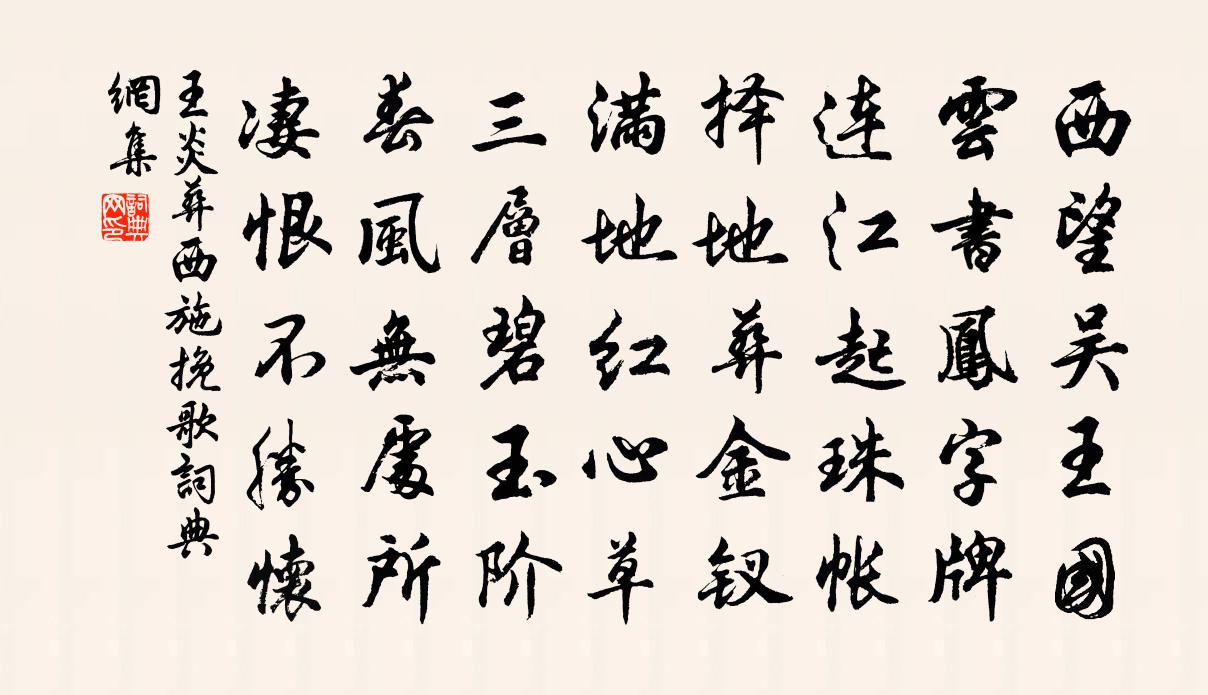 西望吴王國
雲書鳳字牌
連江起珠帐
择地葬金钗
满地红心草
三層碧玉阶
春風無處所
凄恨不勝懷
王炎葬西施挽歌詞典
網集
詞典
网印